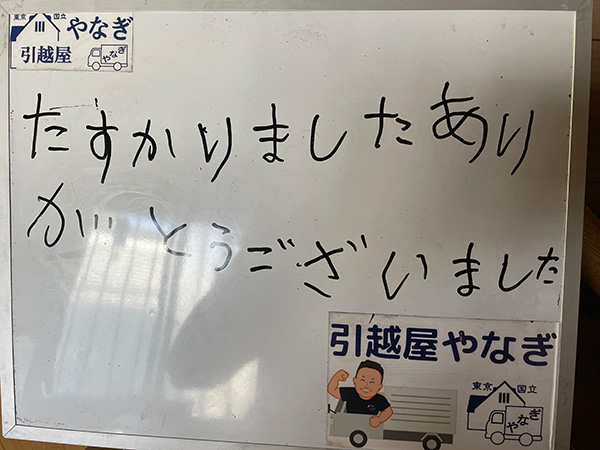 東京 国立 やなぎ
引越屋 やなぎ
たすかりましたあり
がとうございました
引越屋やなぎ
東京 国立
やなぎ